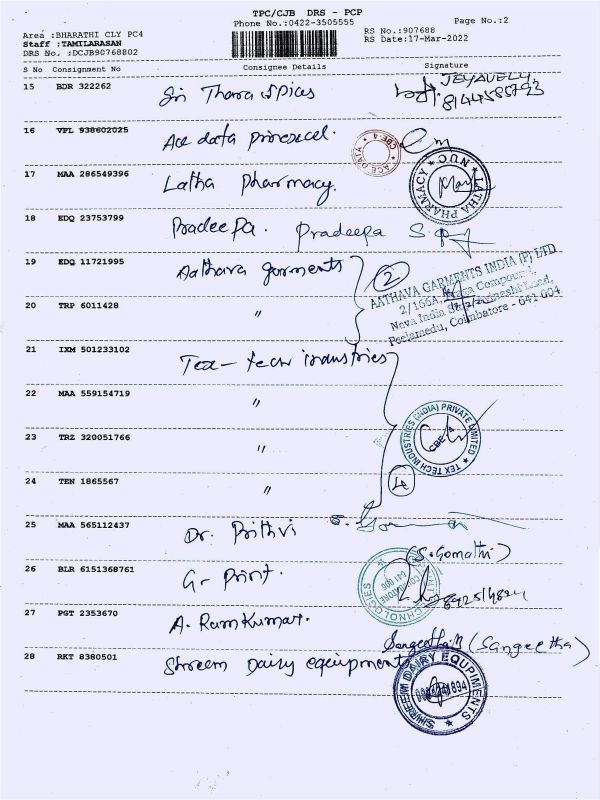 TPC/CJB DRS - PCP
Phone No.:0422-3505555
Page No.:2
Area :BHARATHI CLY PC4
Staff :TAMILARASAN
DRS No. :DCJB90768802
RS No.:907688
RS Date:17-Mar-2022
S No Consignment No Consignee Details Signature
15 BDR 322262 Sri Thara Spices JEYAVELY,
8144586793
16 VPL 938602025 Ace data
ACE DATA CBE-4
17 MAA 286549396 Latha pharmacy.
LATHA PHARMACY
18 EDQ 23753799 Pradeepa. Pradeepa S.
19 EDQ 11721995 Aathava garments 2
AATHAVA GARMENTS INDIA (P) LTD
2/166A, Compound,
Nava India Avinashi Road,
Peelamedu, Coimbatore - 641 004
20 TRP 6011428 "
21 IXM 501233102 Tex-tech industries
22 MAA 559154719 "
23 TRZ 320051766 "
TEX TECH INDUSTRIES (INDIA) PRIVATE LIMITED
CBE-4
24 TEN 1865567 " 4
25 MAA 565112437 Dr. Prithvi
(S. Gomathi)
26 BLR 6151368761 G-Print.
27 PGT 2353670 A. Ramkumar.
Sangeetha (Sangeetha)
28 RKT 8380501 Shreem Dairy equipment
SHREEM DAIRY EQUPMENTS